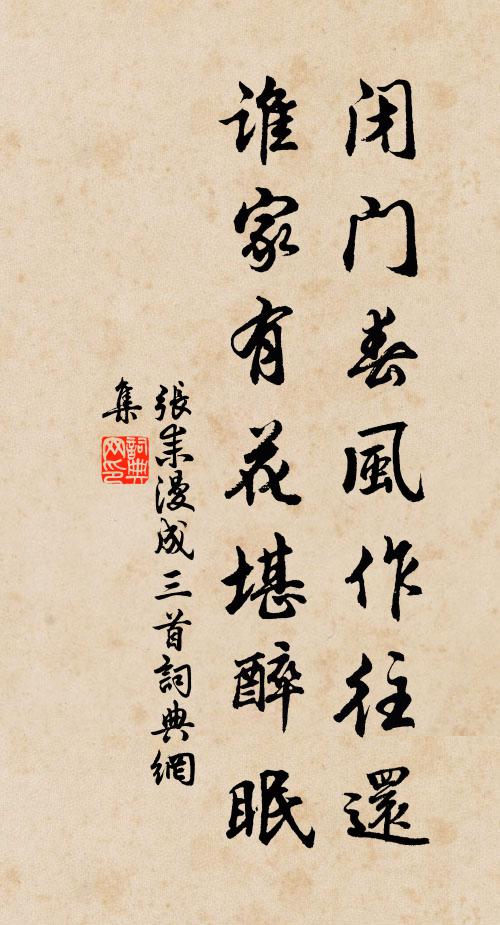 闭门春風作往還
誰家有花堪醉眠
張耒漫成三首詞典網
集
詞典
网印